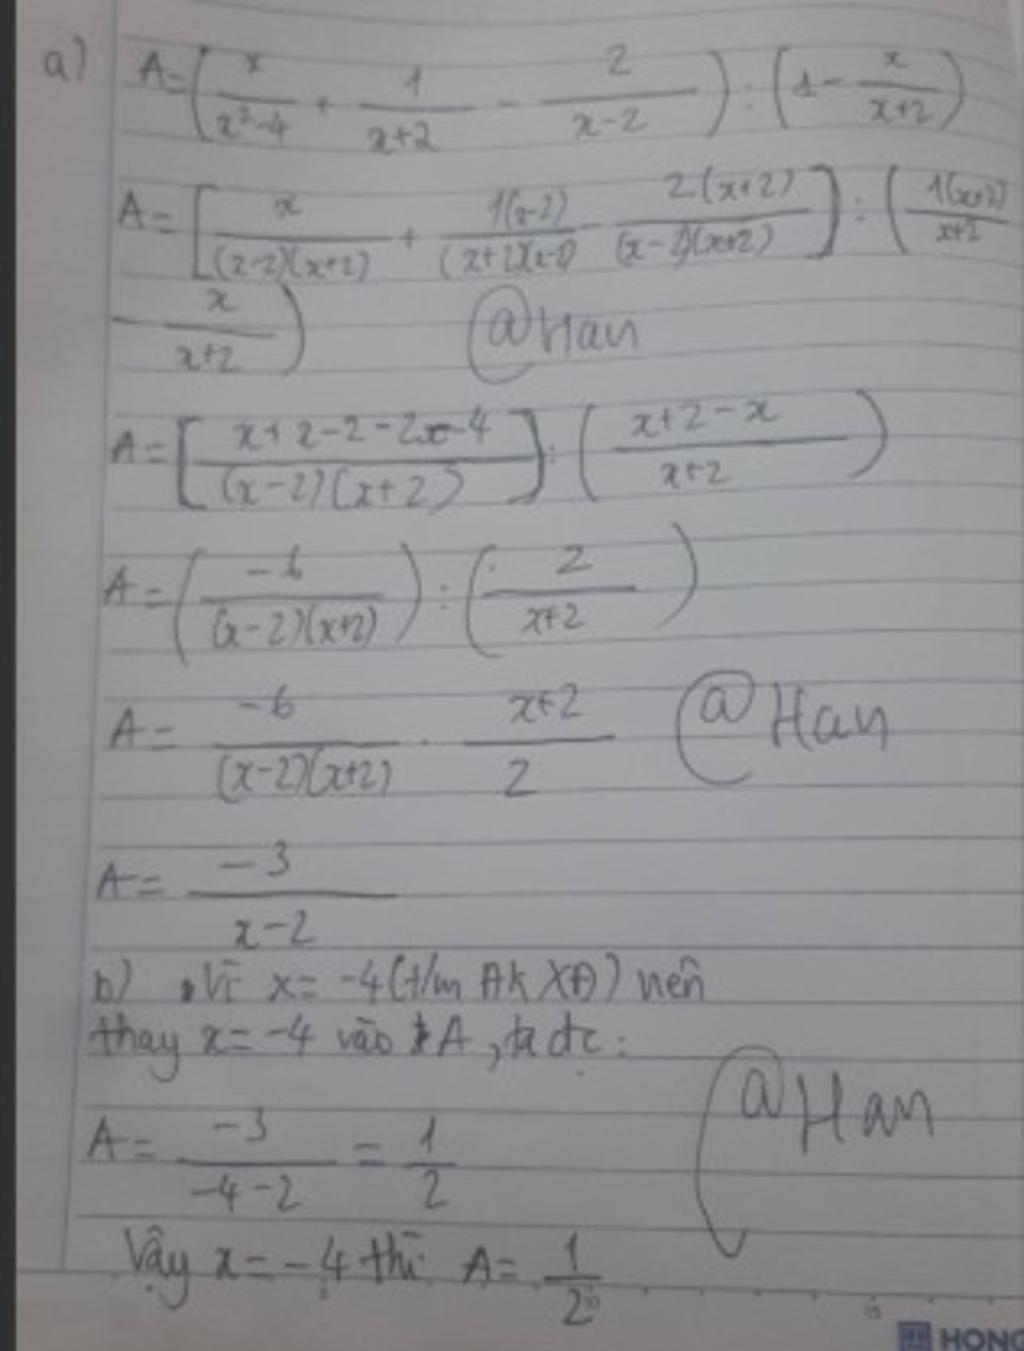 a) A = (x/(x²-4) + 1/(x+2) - 2/(x-2)) : (1 - x/(x+2))
A = [x/((x-2)(x+2)) + 1(x-2)/((x+2)(x-2)) - 2(x+2)/((x-2)(x+2))] : (1(x+2)/(x+2)
- x/(x+2)) @Han
A = [(x+x-2-2x-4)/((x-2)(x+2))] : ((x+2-x)/(x+2))
A = (-6/((x-2)(x+2))) : (2/(x+2))
A = -6/((x-2)(x+2)) . (x+2)/2 @Han
A = -3/(x-2)
b) Vì x = -4 (t/m ĐKXĐ) nên
thay x = -4 vào A, ta đc:
A = -3/(-4-2) = 1/2 @Han
Vậy x = -4 thì A = 1/2
HONG